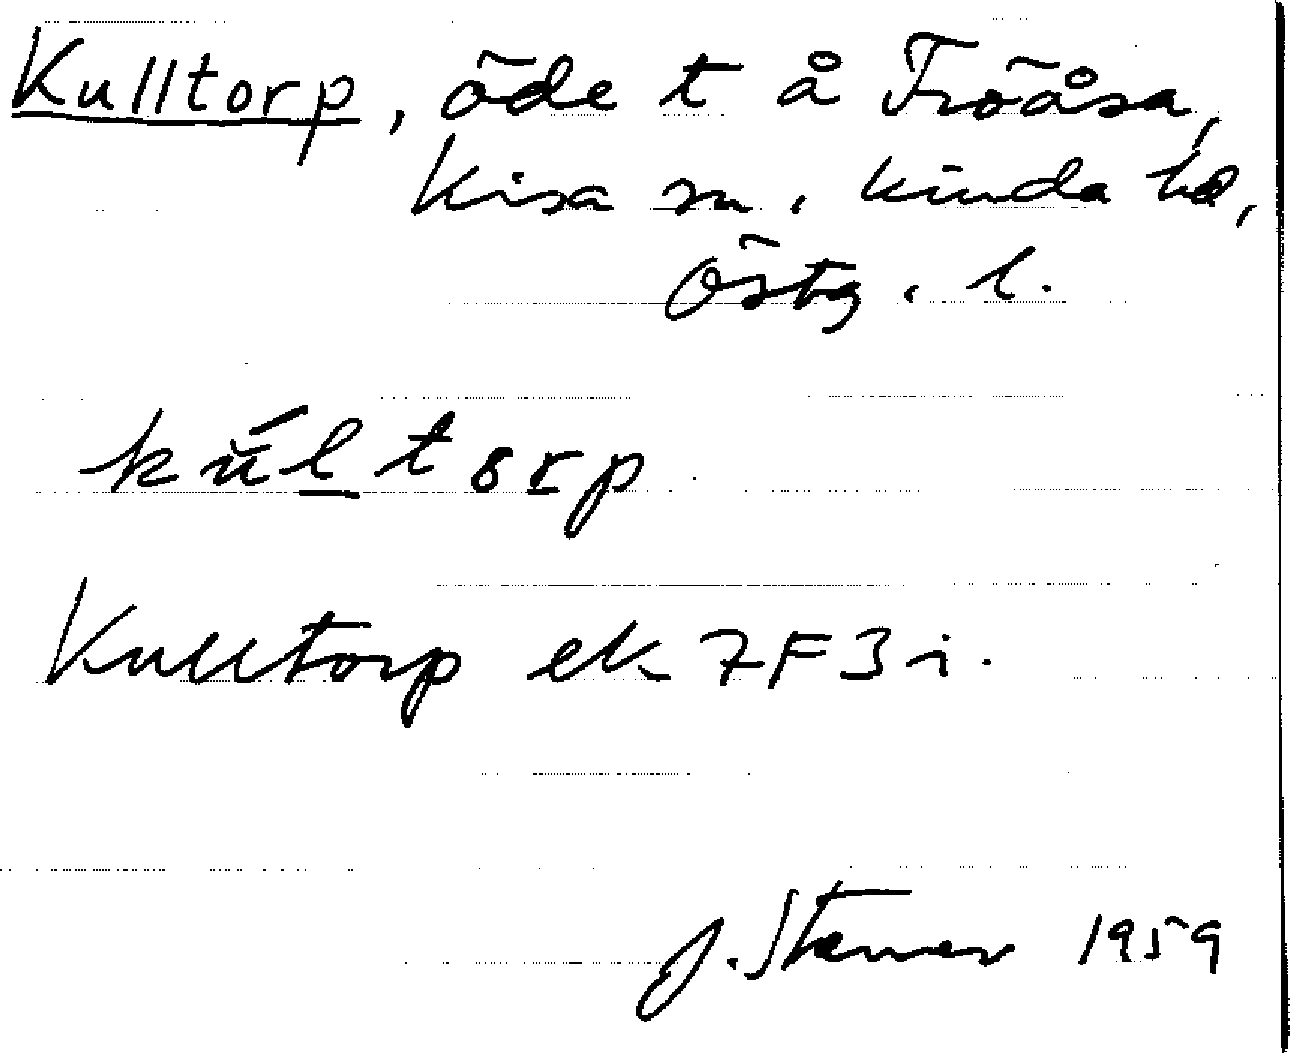 Kulltorp, öde t å Fröåsa,
Kisa sn, Kinda hd,
Östg. l.
kúltorp
Kulltorp ek 7F3i.
J. Stenner 1959